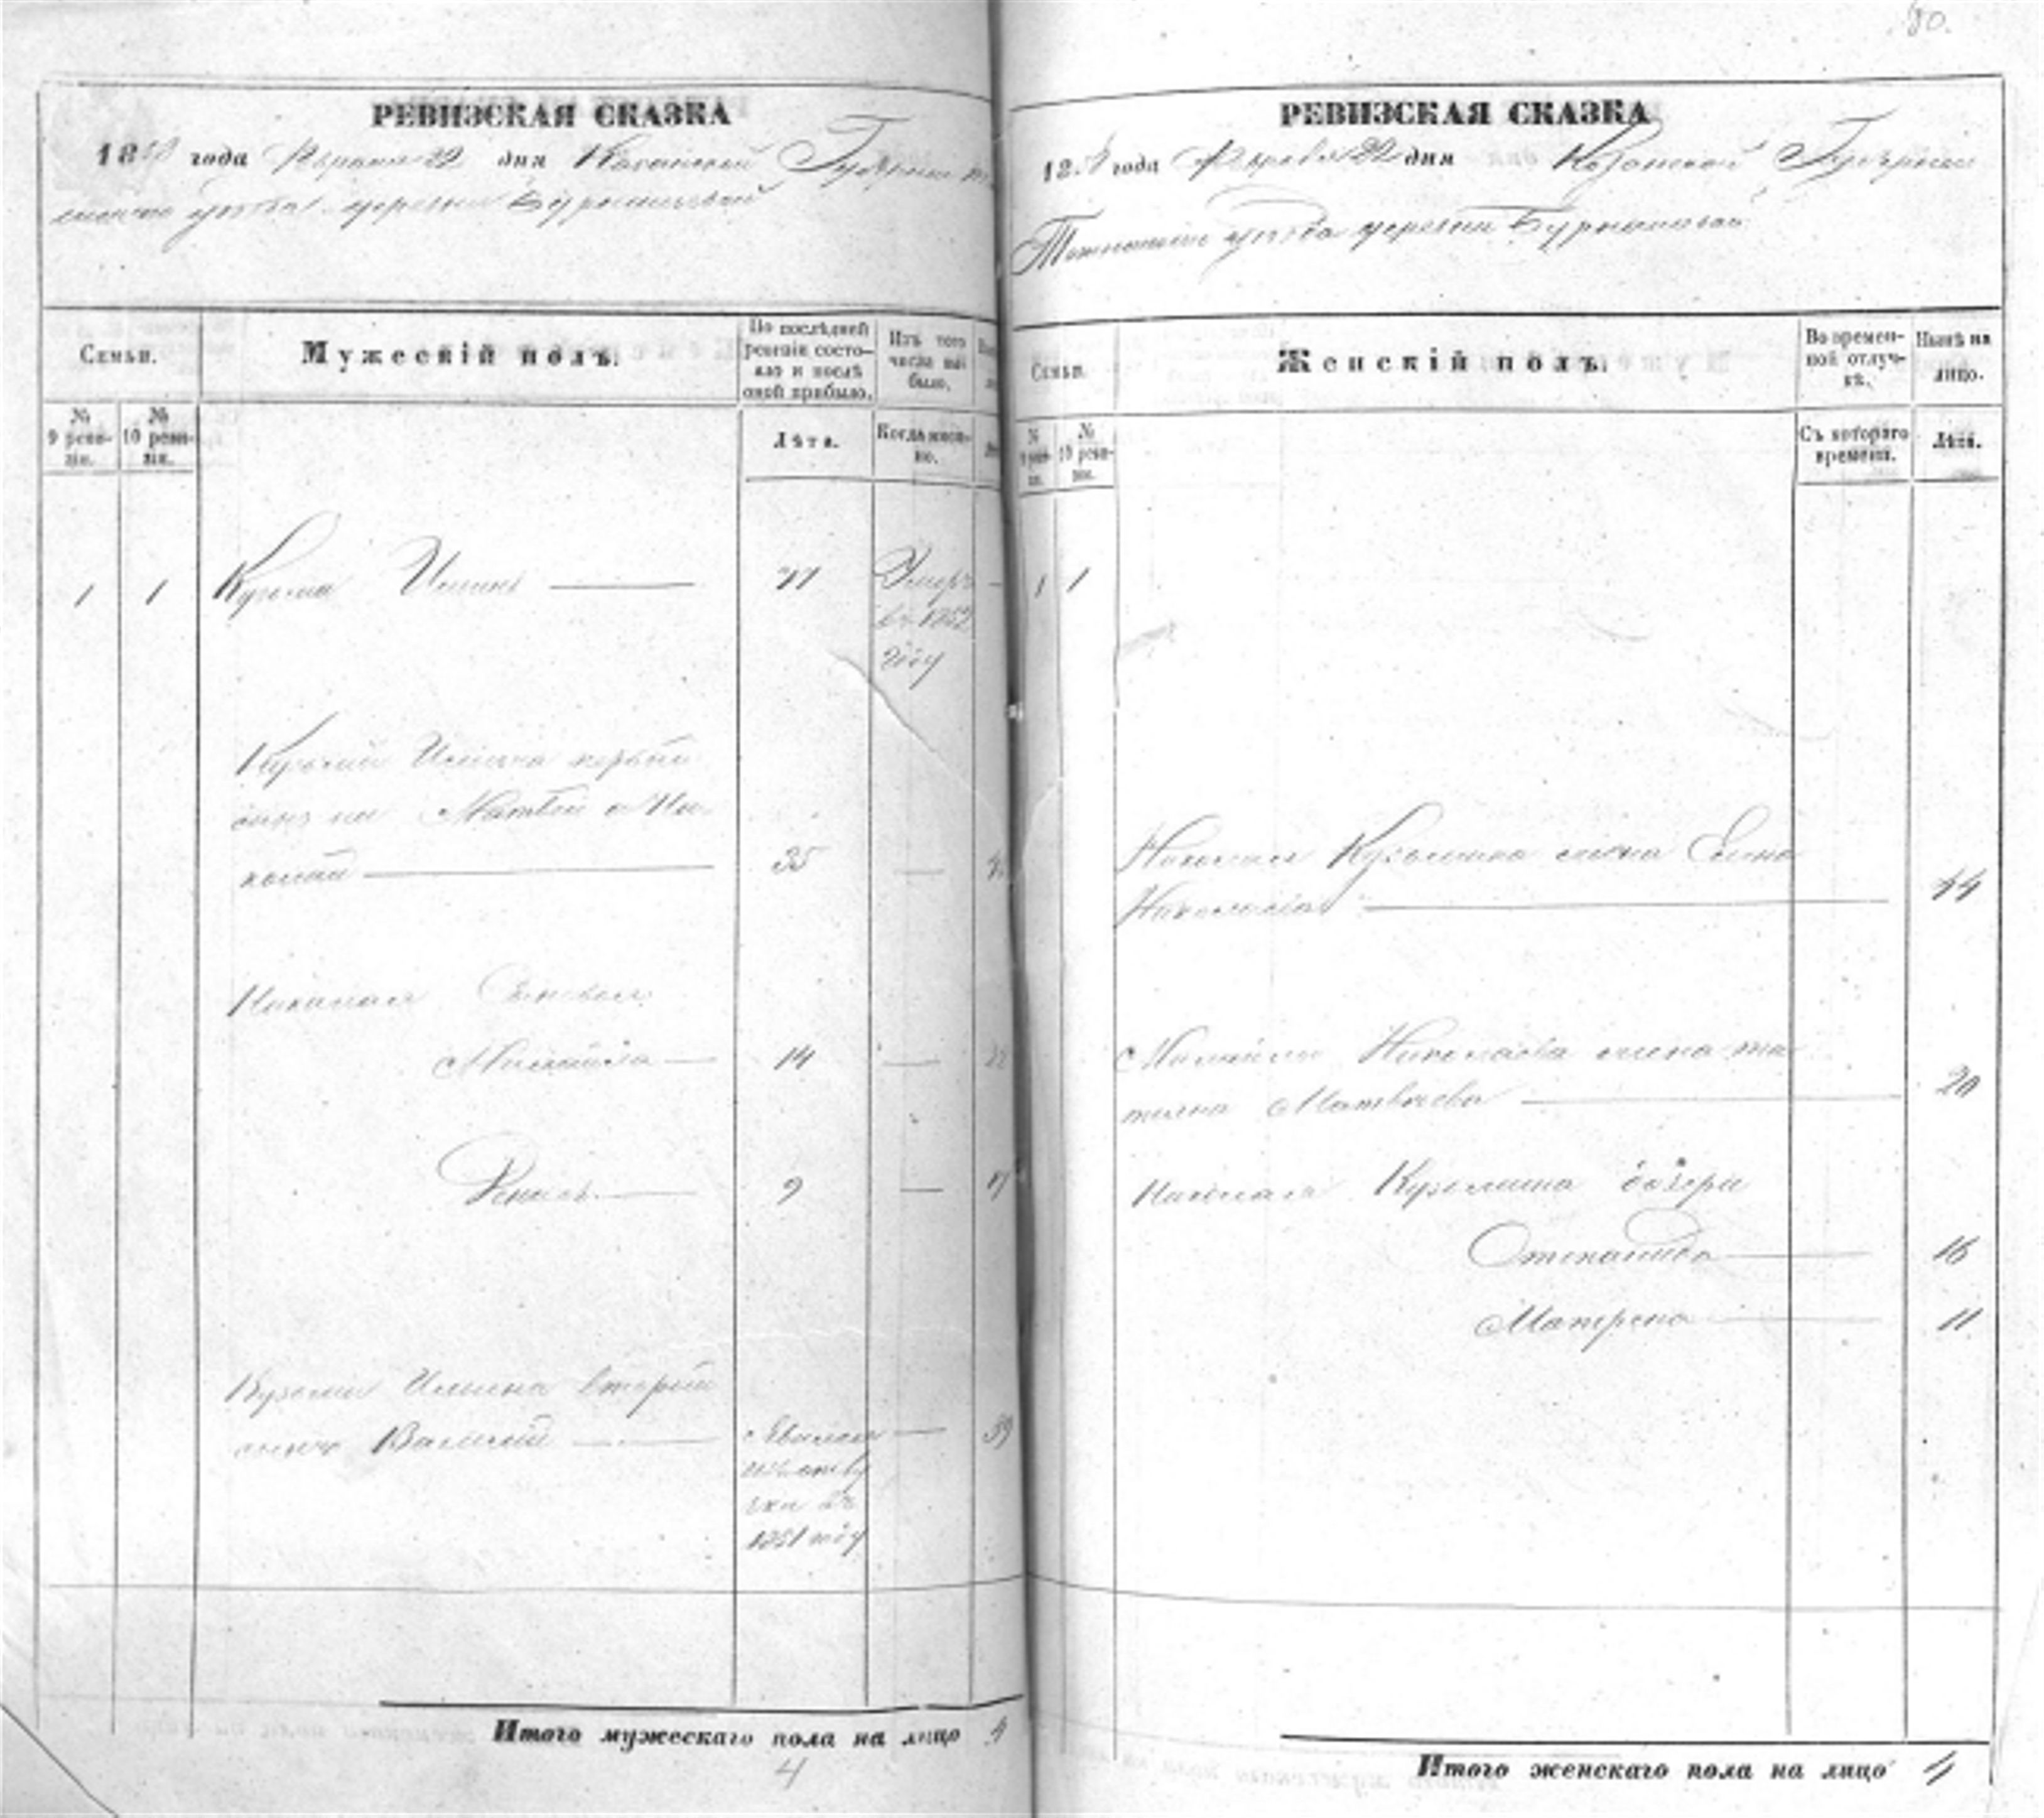 80.
РЕВИЗСКАЯ СКАЗКА
1858 года Февраля 22 дня Казанской Губернии
уѣзда деревни Бурнашевой
Семьи.
Мужескій полъ.
По послѣдней ревизіи состояло и послѣ оной прибыло.
Изъ того числа выбыло.
№ 9 ревизіи.
№ 10 ревизіи.
Лѣта.
Когда именно.
1 1 Кузьма Ильинъ 71 Умеръ
въ 1852
году
Кузьмы Ильина первый
сынъ Николай 35
Николая Сыновья
Михайла 14 22
9 17
Кузьмы Ильина вторый
сынъ Василий Явился 59
въ
1851 году
Итого мужескаго пола на лицо 4
4
РЕВИЗСКАЯ СКАЗКА
1858 года Февраля 22 дня Казанской Губернии
уѣзда деревни Бурнашевой
Семьи.
Женскій полъ.
Во временной отлучкѣ.
Нынѣ на лицо.
№ 9 ревизіи.
№ 10 ревизіи.
Съ котораго времени.
Лѣта.
1 1
Николая Кузьмина жена Елена
Николаева 44
Михайлы Николаева жена Та
тьяна Матвѣева 20
Николая Кузьмина дочери
Степанида 16
Матрена 11
Итого женскаго пола на лицо 4